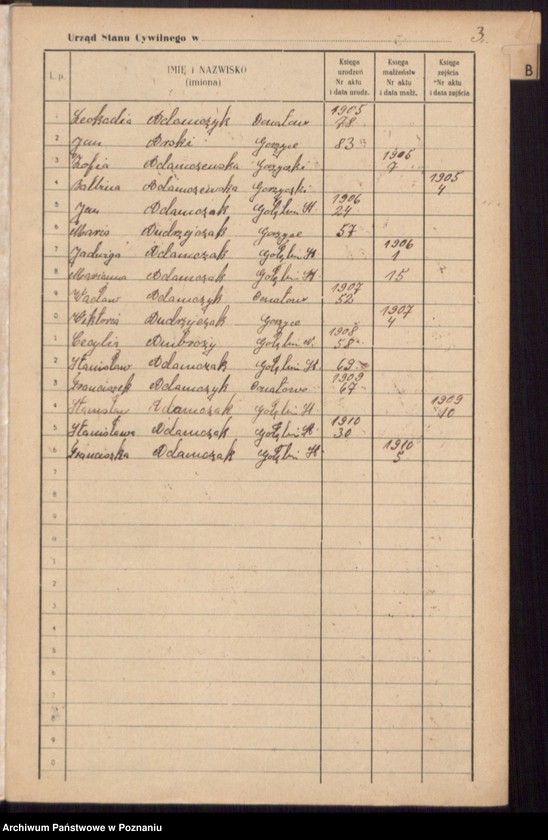 3.
Urząd Stanu Cywilnego w
B
L. p.
IMIĘ i NAZWISKO
(imiona)
Księga
urodzeń
Nr aktu
i data urodz.
Księga
małżeństw
Nr aktu
i data małż.
Księga
zejścia
Nr aktu
i data zejścia
1905
1 Leokadia Adamczyk 78
2 Jan Arski Gorzyce 83
1905
3 Zofia Adamczewska Gorzyczki 7
1905
4 Balbina Adamczewska Gorzyczki 4
1906
5 Jan Adamczak Gołębin St 24
6 Maria Andrzejczak Gorzyce 57
1906
7 Jadwiga Adamczak Gołębin St 1
8 Marianna Adamczak Gołębin St 15
1907
9 Wacław Adamczyk 52
1907
0 Wiktoria Andrzejczak Gorzyce 4
1908
1 Cecylia Ambroży Gołębin 58
2 Stanisław Adamczak Gołębin St 69
1909
3 Franciszek Adamczyk 67
1909
4 Stanisław Adamczak Gołębin St 10
1910
5 Stanisława Adamczak Gołębin St 30
1910
6 Franciszka Adamczak Gołębin St 5
7
8
9
0
1
2
3
4
5
6
7
8
9
0
Archiwum Państwowe w Poznaniu